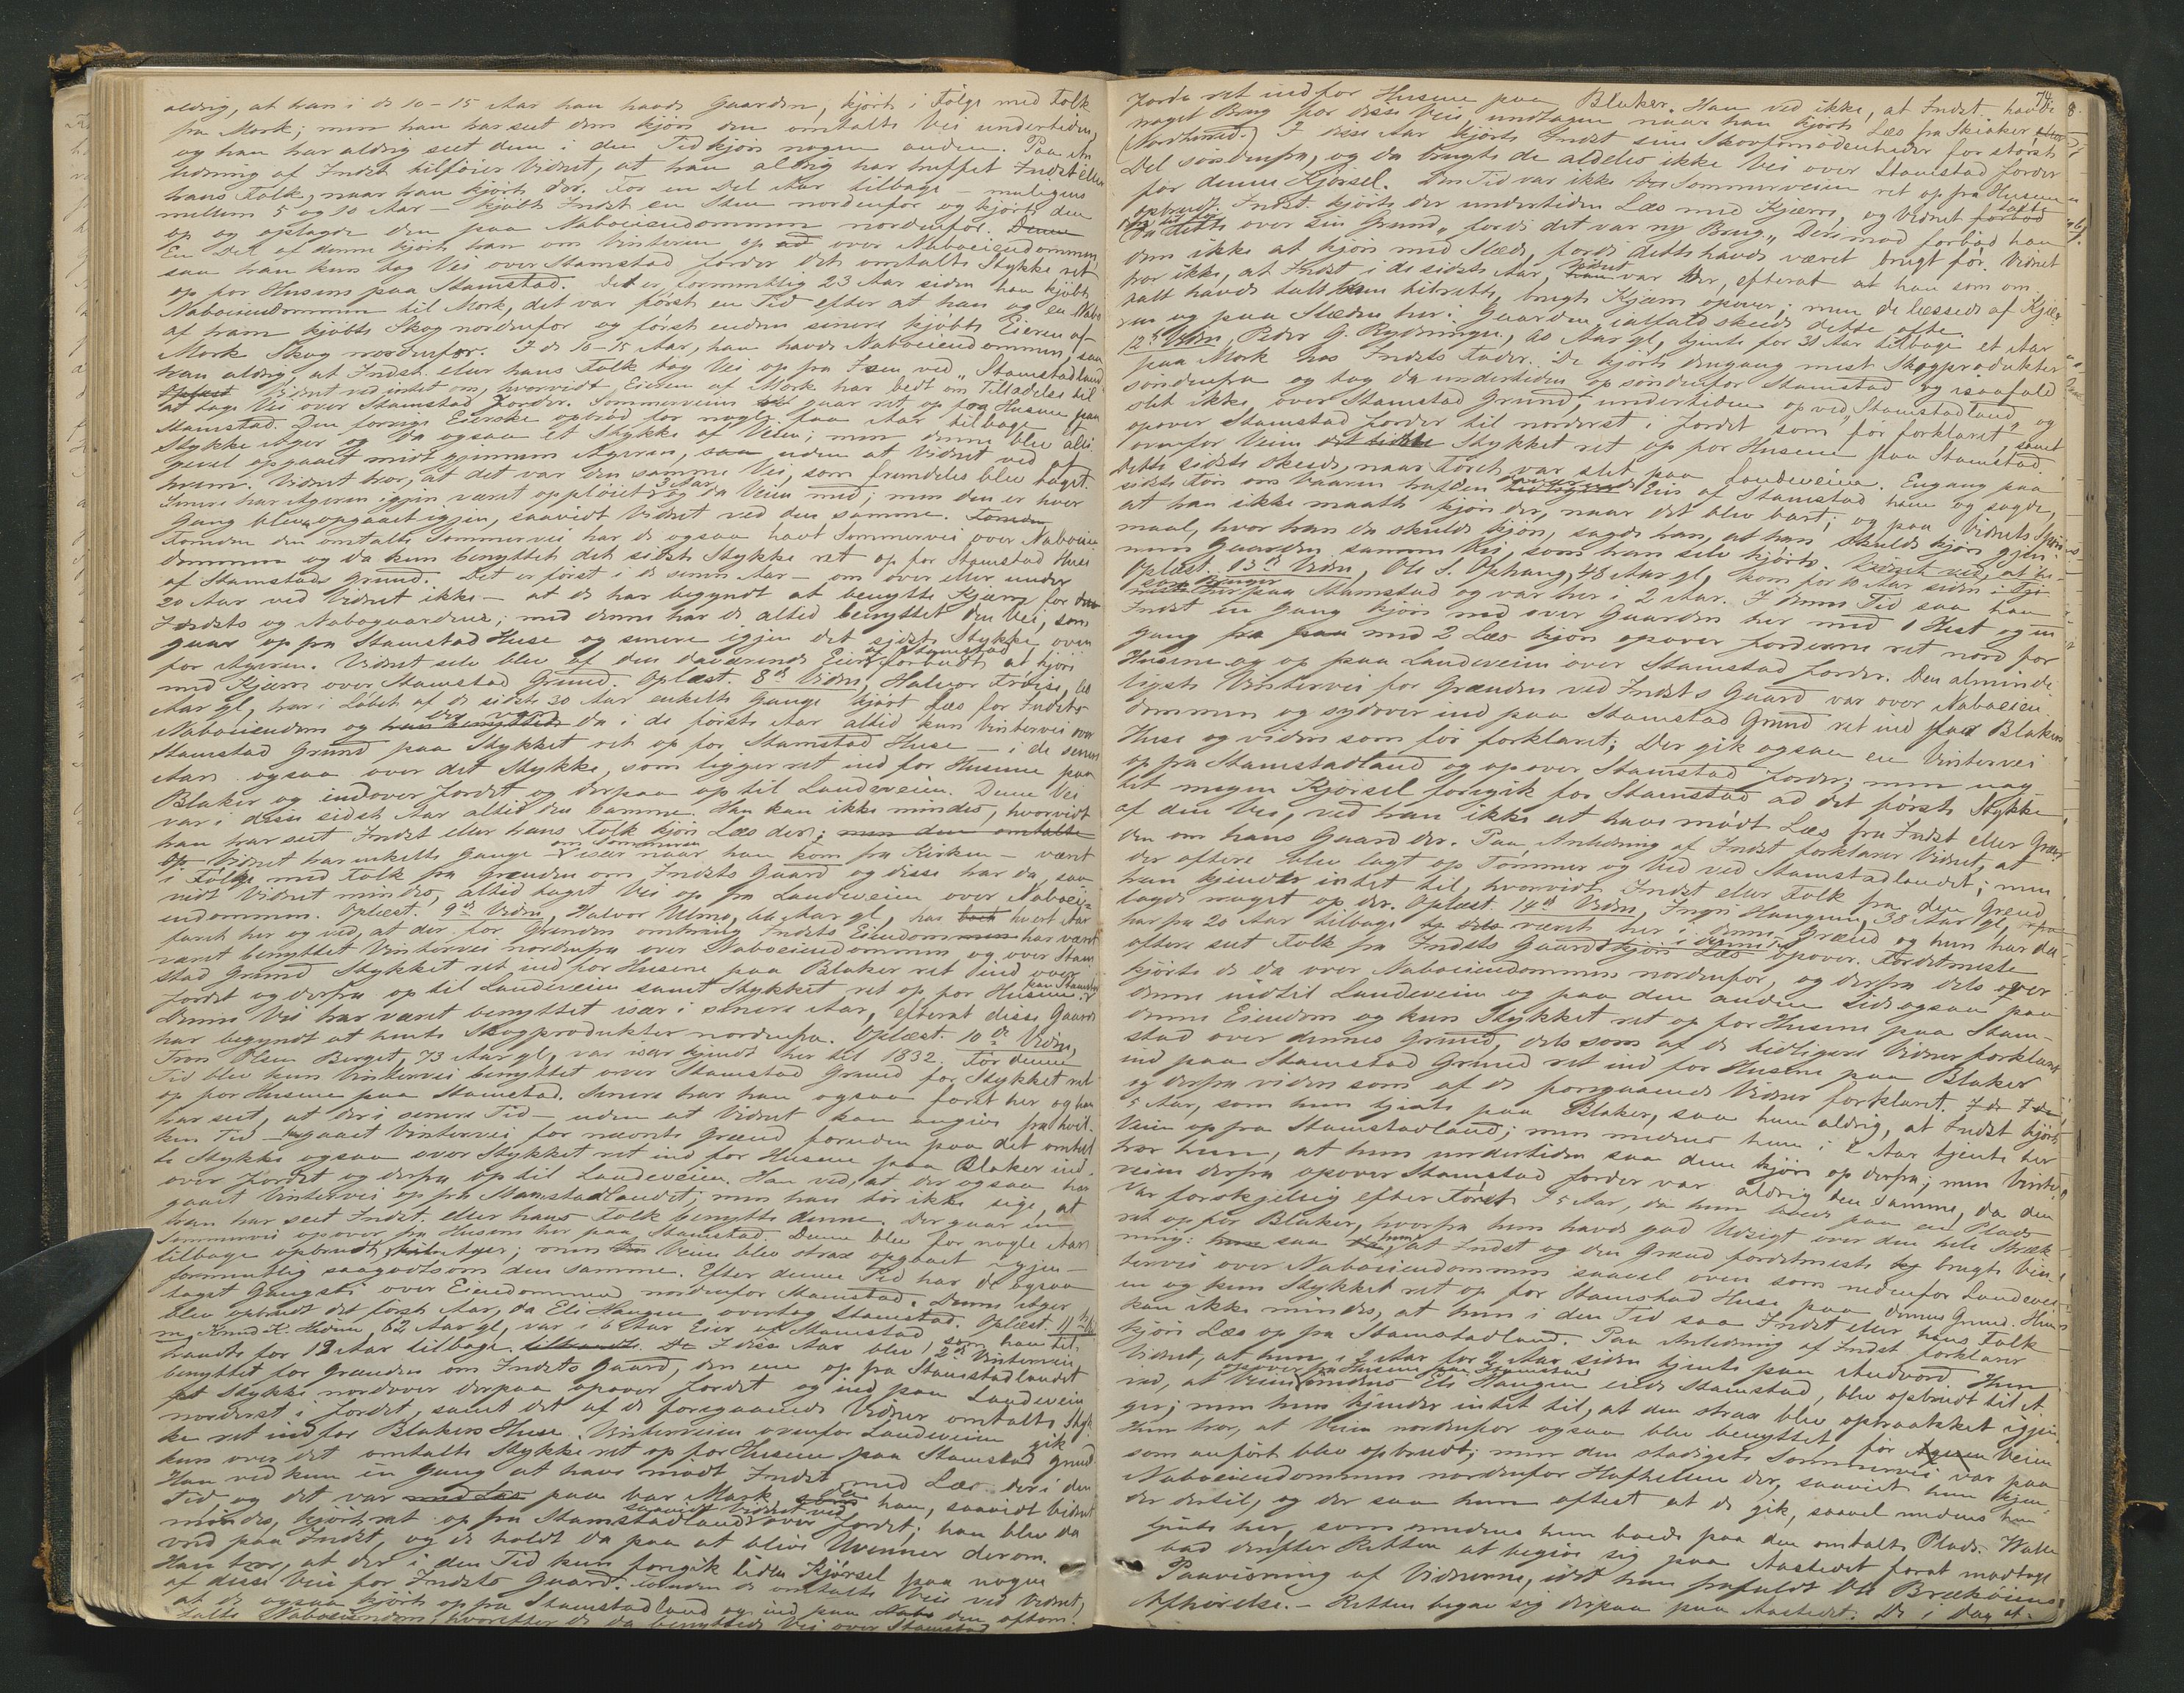 aldrig, at han i de 10-15 Aar han havde Gaarden, kjørte i Følge med Folk
fra Mork; men han har seet dem kjøre den omtalte Vei undertiden,
og han har aldrig seet dem i den Tid kjøre nogen anden. Paa An
ledning af Indst. tilføier Vidnet, at han aldrig har truffet Indst eller
hans Folk, naar han kjørte der. For en Del Aar tilbage - muligens
mellem 5 og 10 Aar - kjøbte Indst en Skov nordenfor og kjørte den
op og oplagde den paa Naboeiendommen nordenfor. Denne
En Del af denne kjørte han om Vinteren op ad over Naboeiendommen,
saa han kun tog Vei over Stamstad Jorder det omtalte Stykke ret
op for Husene paa Stamstad. Det er formentlig 23 Aar siden han kjøbte
Naboeiendommen til Mork, det var først en Tid efter at han og en Nabo
af ham kjøbte Skog nordenfor og først endnu senere kjøbte Eieren af
Mork Skog nordenfor. I de 10-15 Aar, han havde Naboeiendommen, saa
han aldrig, at Indst. eller hans Folk tog Vei op fra Isen ved "Stamstadland
Oplæst Vidnet ved intet om, hvorvidt Eieren af Mork har bedt om Tilladelse til
at tage Vei over Stamstad Jorder. Sommerveien gaar ret op fra Husene paa
Stamstad. Den forrige Eierske opbrød for nogle faa Aar tilbage et
Stykke Ager og da ogsaa et Stykke af Veien; men denne blev alli
gevel opgaaet midt gjennem Ageren, saa uden at Vidnet ved af
hvem. Vidnet tror, at det var den samme Vei, som fremdeles blev taget.
Senere har Ageren igjen været oppløiet 3 Aar og da Veien med; men den er hver
Gang bleven opgaaet igjen, saavidt Vidnet ved den samme. Foruden
Foruden den omtalte Sommervei har de ogsaa havt Sommervei over Naboeien
dommen og da kun benyttet det sidste Stykke ret op for Stamstad Huse
af Stamstads Grund. Det er først i de senere Aar - om over eller under
20 Aar ved Vidnet ikke - at de har begyndt at benytte Kjærre for den
Indsts og Nabogaardene; med denne har de altid benyttet den Vei, som
gaar op fra Stamstad Huse og senere igjen det sidste Stykke oven
for Ageren. Vidnet selv blev af den daværende Eier af Stamstad forbudt at kjøre
med Kjærre over Stamstad Grund. Oplæst. 8de Vidne, Halvor Frøise,
Aar gl, har i Løbet af de sidste 30 Aar enkelte Gange kjørt Læs for Indsts
Naboeiendom og han benyttede da i de første Aar altid kun Vintervei over
Stamstad Grund paa Stykket ret op for Stamstad Huse - i de senere
Aar ogsaa over det Stykke, som ligger ret ind for Husene paa
Blaker og indover Jordet og derpaa op til Landeveien. Denne Vei
var i disse sidste Aar altid den samme. Han kan ikke mindes, hvorvidt
han har seet Indst eller hans Folk kjøre Læs der; men den omtalte
Op Vidnet har enkelte Gange om Sommeren især naar han kom fra Kirken - været
i Følge med Folk fra Grenden om Indsts Gaard og disse har da, saa
vidt Vidnet mindes, altid taget Vei op fra Landeveien over Naboei
endommen. Oplæst. 9de Vidne, Halvor Ulmo, Aar gl, har hvert Aar
faret her og ved, at der for Grenden omkring Indsts Eiendommen har været
været benyttet Vintervei nordenfra over Naboeiendommen og over Stam
stad Grund Stykket ret ind for Husene paa Blaker ret ind over
Jordet og derfra op til Landeveien samt Stykket ret op for Husene paa Stamstad
Denne Vei har været benyttet især i senere Aar, efterat disse Gaarde
har begyndt at hente Skogprodukter nordenfra. Oplæst. 10de Vidne,
Tron Olsen Berget, 73 Aar gl, var især kjendt her til 1832. Før denne
Tid blev kun Vintervei benyttet over Stamstad Grund for Stykket ret
op for Husene paa Stamstad. Senere har han ogsaa faret her og han
har seet, at der i senere Tid - uden at Vidnet kan angive fra hvil
ken Tid - er gaaet Vintervei for nævnte Grænd foruden paa det omtal
te Stykke ogsaa over Stykket ret ind for Husene paa Blaker ind
over Jordet og derfra op til Landeveien. Han ved, at der ogsaa har
gaaet Vintervei op fra Stamstadlandet; men han tør ikke sige, at
han har seet Indst. eller hans Folk benytte denne. Der gaar en
Sommervei opover fra Husene her paa Stamstad. Denne blev for nogle Aar
tilbage opbrudt til Ager; men Veien blev strax opgaaet igjen -
formentlig saagodtsom den samme. Efter denne Tid har de ogsaa
taget Gangsti over Eiendommen nordenfor Stamstad. Denne Ager
blev opbrudt det første Aar, da Eli Haugen overtog Stamstad. Oplæst. 11te Vid
ne, Knud K. Hiden, 62 Aar gl, var i 6 Aar Eier af Stamstad, som han til
handte for 18 Aar tilbage. I disse Aar blev 2de Vinterveie
benyttet for Grænden om Indsts Gaard, den ene op fra Stamstadlandet
et Stykke nordover derpaa opover Jordet og ind paa Landeveien
norderst i Jordet, samt det af de foregaaende Vidner omtalte Styk
ke ret ind for Blakers Huse. Vinterveien ovenfor Landeveien gik
kun over det omtalte Stykke ret op for Husene paa Stamstad Grund.
Han ved kun en Gang at have mødt Indst med Læs der i den
Tid og det var paa bar Mark da han, saavidt Vidnet
mindes, kjørte ret op fra Stamstadland saavidt Vidnet ved over Jordet; han blev da
vred paa Indst, og de holdt da paa at blive Uvenner derom.
Han tror, at der i den Tid kun foregik liden Kjørsel paa nogen
af disse Veie for Indsts Gaard. Foruden de omtalte Veie ved Vidnet,
at de ogsaa kjørte op fra Stamstadland og ind paa den oftom
talte Naboeiendom, hvorefter de da benyttede Vei over Stamstad
74.
Jorde ret ind for Husene paa Blaker. Han ved ikke, at Indst. havde
noget Brug for disse Veie, undtagen naar han kjørte Læs fra Skiaker
(Nordherad). I disse Aar kjørte Indst sine Skovfornødenheder for største
Del søndenfra, og da brugte de aldeles ikke Vei over Stamstad Jorder
for denne Kjørsel. Den Tid var ikke Sommerveien ret op fra Husene
opbrudt. Indst. kjørte der undertiden Læs med Kjærre, og Vidnet forbød
da dette over sin Grund "fordi det var ny Brug". Derimod forbød han
dem ikke at kjøre med Slæde, fordi dette havde været brugt før. Vidnet
tror ikke, at Indst i de sidste Aar, Vidnet var her, efterat at han som om
talt havde talt ham tilrette, brugte Kjærre opover; men de læssede af Kjær
ren og paa Slæden her i Gaarden ialfald skede dette ofte.
12te Vidne, Peder G. Rydningen, 60 Aar gl, tjente for 30 Aar tilbage et Aar
paa Mork hos Indsts Fader. De kjørte dengang mest Skogprodukter
søndenfra og tog da undertiden op søndenfor Stamstad og isaafald
slet ikke over Stamstad Grund, undertiden op ved "Stamstadland" og
opover Stamstad Jorder til norderst i Jordet som før forklaret, samt
ovenfor Veien Stykket ret op for Husene paa Stamstad.
Dette sidste skede, naar Føret var slet paa Landeveien. Engang paa
sidste Føre om Vaaren traf den daværende Eier af Stamstad ham og sagde,
at han ikke maatte kjøre der, naar det blev bart; og paa Vidnets Spørgs
maal, hvor han da skulde kjøre, sagde han, at han skulde kjøre gjen
nem Gaarden samme Vei, som han selv kjørte.
Oplæst. 13de Vidne, Ole S. Ophaug, 48 Aar gl, kom for 10 Aar siden
som Bruger paa Stamstad og var her i 2 Aar. I denne Tid saa han
Indst en Gang kjøre ned over Gaarden her med 1 Hest og en
Gang fra med 2 Læs kjøre opover Jorderne ret nord for
Husene og op paa Landeveien over Stamstad Jorder. Den alminde
ligste Vintervei for Grænden ved Indsts Gaard var over Naboeien
dommen og sydover ind paa Stamstad Grund ret ind for Blakers
Huse og videre som før forklaret; Der gik ogsaa en Vintervei
op fra Stamstadland og opover Stamstad Jorder; men uag
tet megen Kjørsel foregik for Stamstad ad det første Stykke
af den Vei, ved han ikke at have mødt Læs fra Indst eller Græn
den om hans Gaard der. Paa Anledning af Indst forklarer Vidnet, at
der oftere blev lagt op Tømmer og Ved ved Stamstadlandet; men
han kjender intet til, hvorvidt Indst eller Folk fra den Grænd
lagde noget op der. Oplæst. 14de Vidne, Ingri Haugen, 38 Aar gl,
har fra 20 Aar tilbage været her i denne Grænd og hun har da
oftere seet Folk fra Indsts Gaard kjøre Læs opover. Fordetmeste
kjørte de da over Naboeiendommen nordenfor, og derfra dels over
denne indtil Landeveien og paa den anden Side ogsaa paa
denne Eiendom og kun Stykket ret op for Husene paa Stam-
stad over dennes Grund, dels som af de tidligere Vidner forklaret
ind paa Stamstad Grund ret ind for Husene paa Blaker
og derfra videre som af de foregaaende Vidner forklaret. I de
5 Aar, som hun tjente paa Blaker, saa hun aldrig, at Indst kjørte
Veien op fra Stamstadland; men medens hun i 2 Aar tjente her
tror hun, at hun undertiden saa dem kjøre op derfra; men Vinter
veien derfra opover Stamstad Jorder var aldrig den samme, da den
var forskjellig efter Føret. I 5 Aar, da hun boede paa en Plads
ret op for Blaker, hvorfra hun havde god Udsigt over den hele Stræk
ning: saa hun, at Indst og den Grænd fordetmeste brugte Vin
tervei over Naboeiendommen saavel oven som nedenfor Landevei
en og kun Stykket ret op for Stamstad Huse paa dennes Grund. Hun
kan ikke mindes, at hun i den Tid saa Indst eller hans Folk
kjøre Læs op fra Stamstadland. Paa Anledning af Indst forklarer
Vidnet, at hun i 2 Aar for 9 Aar siden tjente paa Andvord. Hun
ved, at Veien opover fra Husene paa Stamstad medens Eli Haugen eiede Stamstad, blev opbrudt til A
ger; men hun kjender intet til, at den strax blev optraakket igjen.
Hun tror, at Veien nordenfor ogsaa blev benyttet før Veien
som anført blev opbrudt; men den stadigste Sommervei var paa
Naboeiendommen nordenfor Hofhelsen der, saavidt hun kjen
der dertil, og der saa hun oftest at de gik, saavel medens hun
tjente her, som medens hun boede paa den omtalte Plads. Walle
bad derefter Retten at begive sig paa Aastedet forat modtage
Paavisning af Vidnerne, idet han frafaldt Ole Brækveiens
Afhørelse. - Retten begav sig derpaa paa Aastedet. De i Dag af-